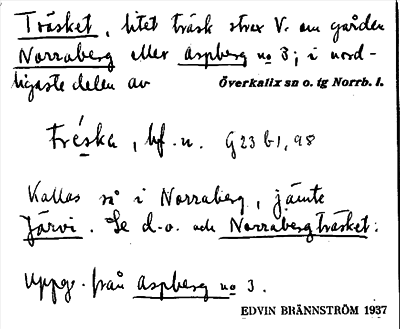 Träsket, litet träsk strax V. om gården
Norraberg eller Aspberg no 3; i nord-
ligaste delen av Överkalix sn o. tg Norrb. l.
tréska, bf. n. G23 b1, 98
Kallas så i Norraberg, jämte
Järvi. Se d.o. och Norrabergträsket.
Uppg. från Aspberg no 3.
EDVIN BRÄNNSTRÖM 1937